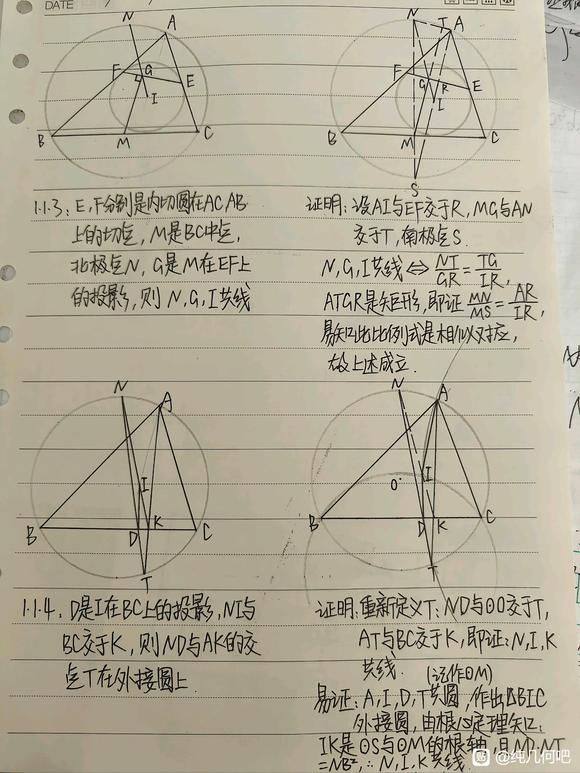 DATE
N
A
F
G
E
I
B
M
C
1.1.3:E,F分别是内切圆在AC AB
上的切点,M是BC中点,
北极点N,G是M在EF上
的投影,则N,G,I共线
N
T
A
F
G
R
E
I
B
M
C
S
证明:设AI与EF交于R,MG与AN
交于T,南极点S.
N,G,I共线⇔NT/GR=TG/IR,
ATGR是矩形,即证MN/MS=AR/IR,
易知此比例式是相似对应,
故上述成立.
N
A
I
B
D
K
C
T
1.1.4.D是I在BC上的投影,NI与
BC交于K,则ND与AK的交
点T在外接圆上
N
A
O
I
B
D
K
C
T
证明:重新定义T:ND与⊙O交于T,
AT与BC交于K,即证:N,I,K
共线.(记作⊙M)
易证:A,I,D,T共圆,作出△BIC
外接圆,由根心定理知:
IK是⊙S与⊙M的根轴,且ND·NT
=NB²,∴N,I,K共线.
贴 @纯几何吧